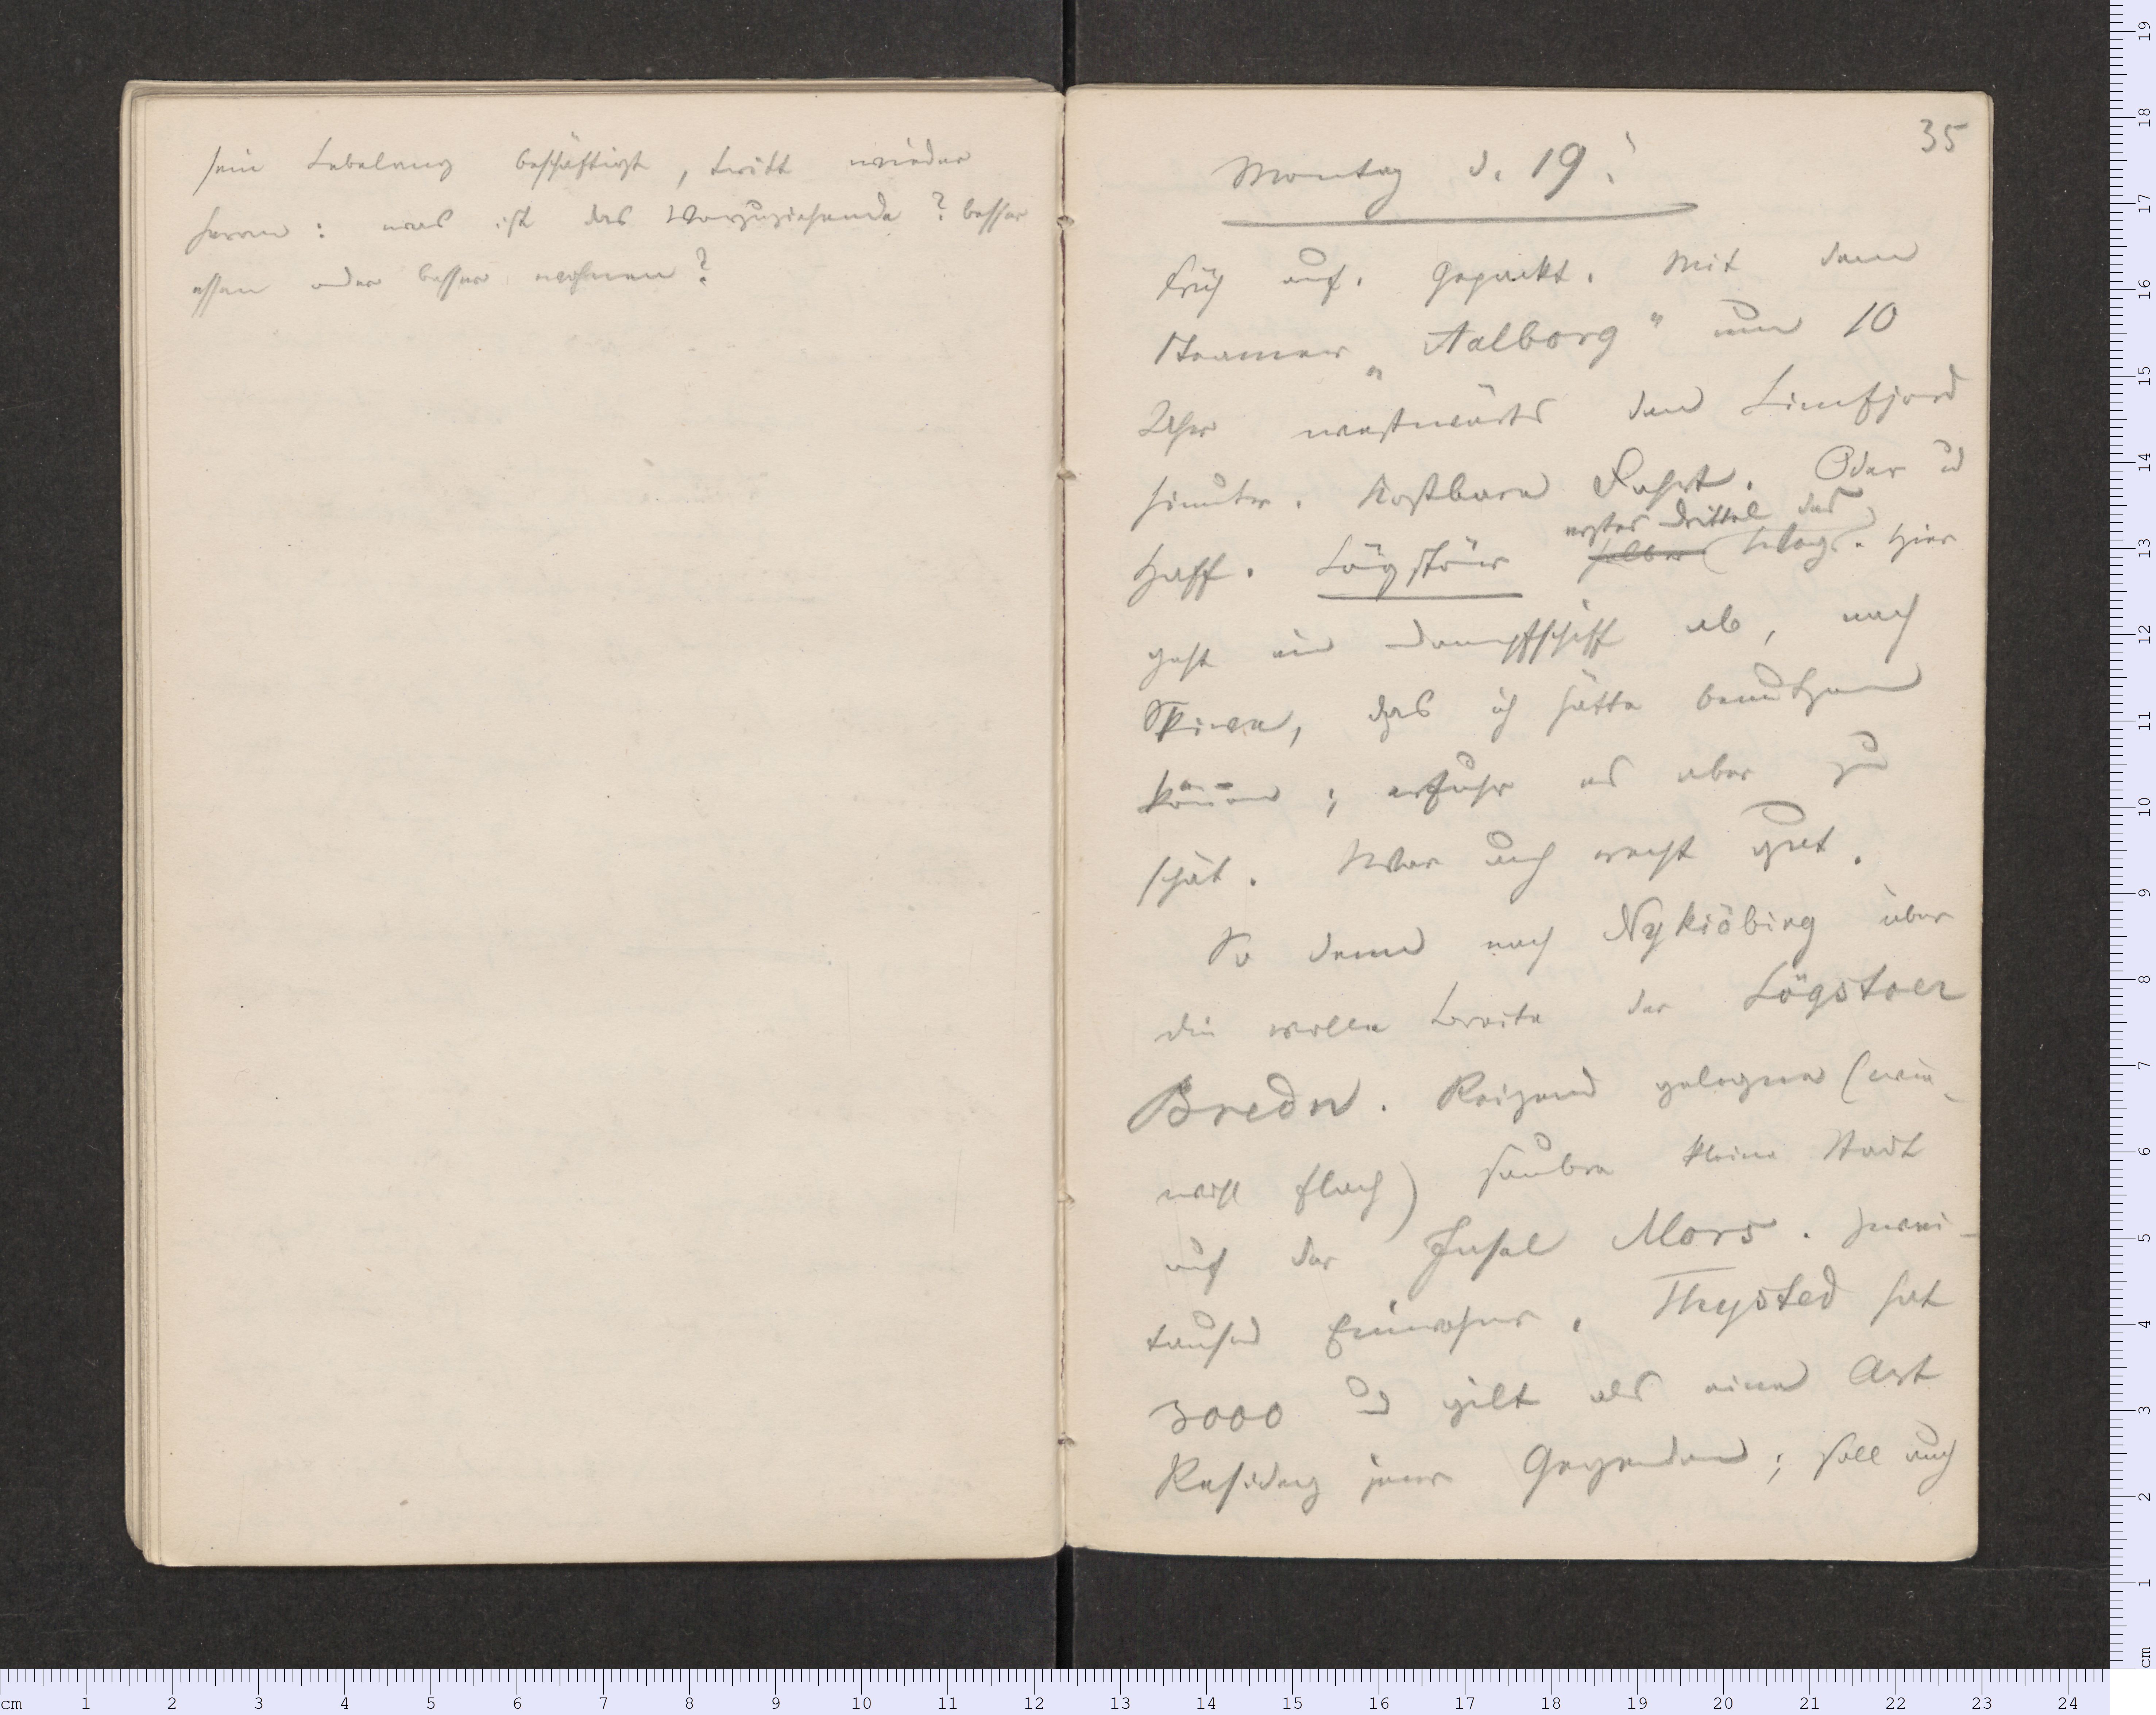 sein Lebelang beschäftigt, tritt wieder
heran: was ist das Vorzuziehende? besser
essen oder besser wohnen?
35
Montag d. 19.
Früh auf. Gepackt. Mit dem
Steamer „Aalborg“ um 10
Uhr westwärts den Limfjord
hinunter. Kostbare Fahrt. Oder u
Haff. Lögstör
erstes Drittel des
halber Wegs. Hier
geht ein Dampfschiff ab, nach
Skive, das ich hätte benutzen
können; erfuhr es aber zu
spät. War auch recht gut.
So denn nach Nykiöbing über
die volle Breite der Lögstoer
Bredn. Reizend gelegene (wie-
wohl flach) saubre kleine Stadt
auf der Insel Mors. Zwei-
tausend Einwohner. Thysted hat
3000 und gilt als eine Art
Residenz jener Gegenden; soll auch